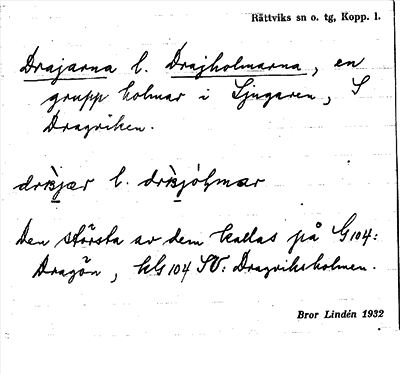 Rättviks sn o. tg, Kopp. l.
Drajarna l. Drajholmarna, en
grupp holmar i Ljugaren, S
Dragviken.
l.
Den största av dem kallas på G104:
Dragön, hG104 SV: Dragviksholmen.
Bror Lindén 1932